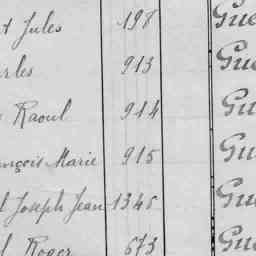 t Jules 198 Gue
rles 913 Gue
Raoul 914 Gu
ançois Marie 915 Gu
l Joseph Jean 1345 Gue
l Roger 673 Gue